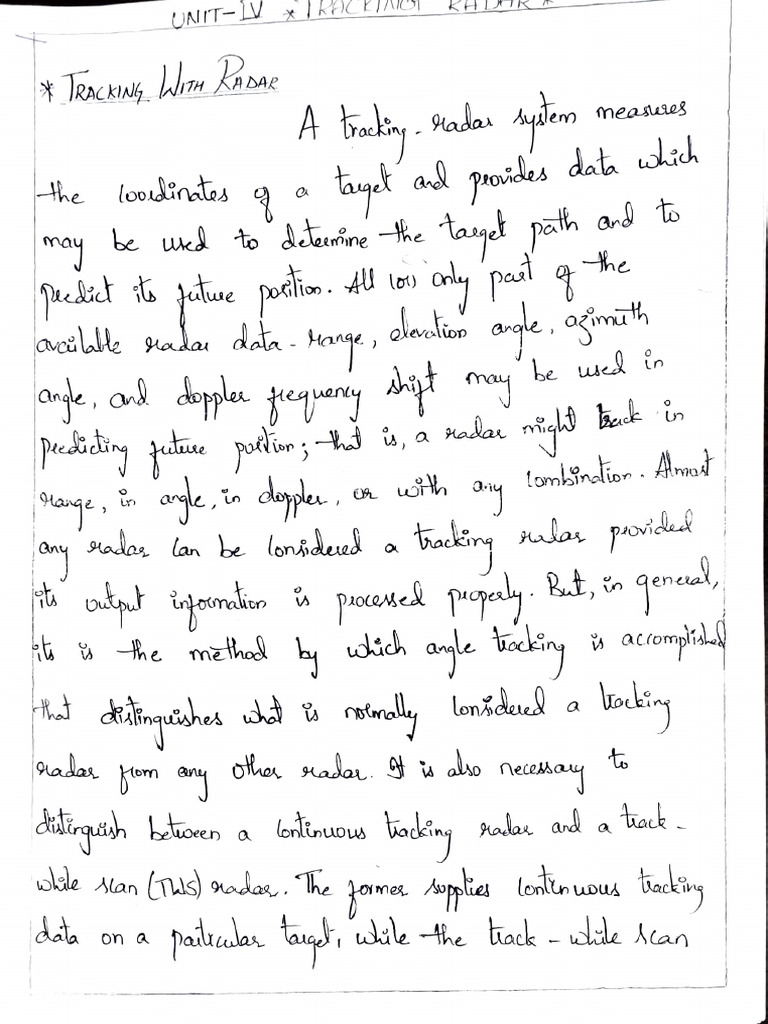 UNIT-IV * TRACKING RADAR *
* TRACKING WITH RADAR
A tracking-radar system measures
the coordinates of a target and provides data which
may be used to determine the target path and to
predict its future position. All (or) only part of the
available radar data-range, elevation angle, azimuth
angle, and doppler frequency shift may be used in
predicting future position; that is, a radar might track in
range, in angle, in doppler, or with any combination. Almost
any radar can be considered a tracking radar provided
its output information is processed properly. But, in general,
its is the method by which angle tracking is accomplished
that distinguishes what is normally considered a tracking
radar from any other radar. It is also necessary to
distinguish between a continuous tracking radar and a track-
while scan (TWS) radar. The former supplies continuous tracking
data on a particular target, while the track-while scan